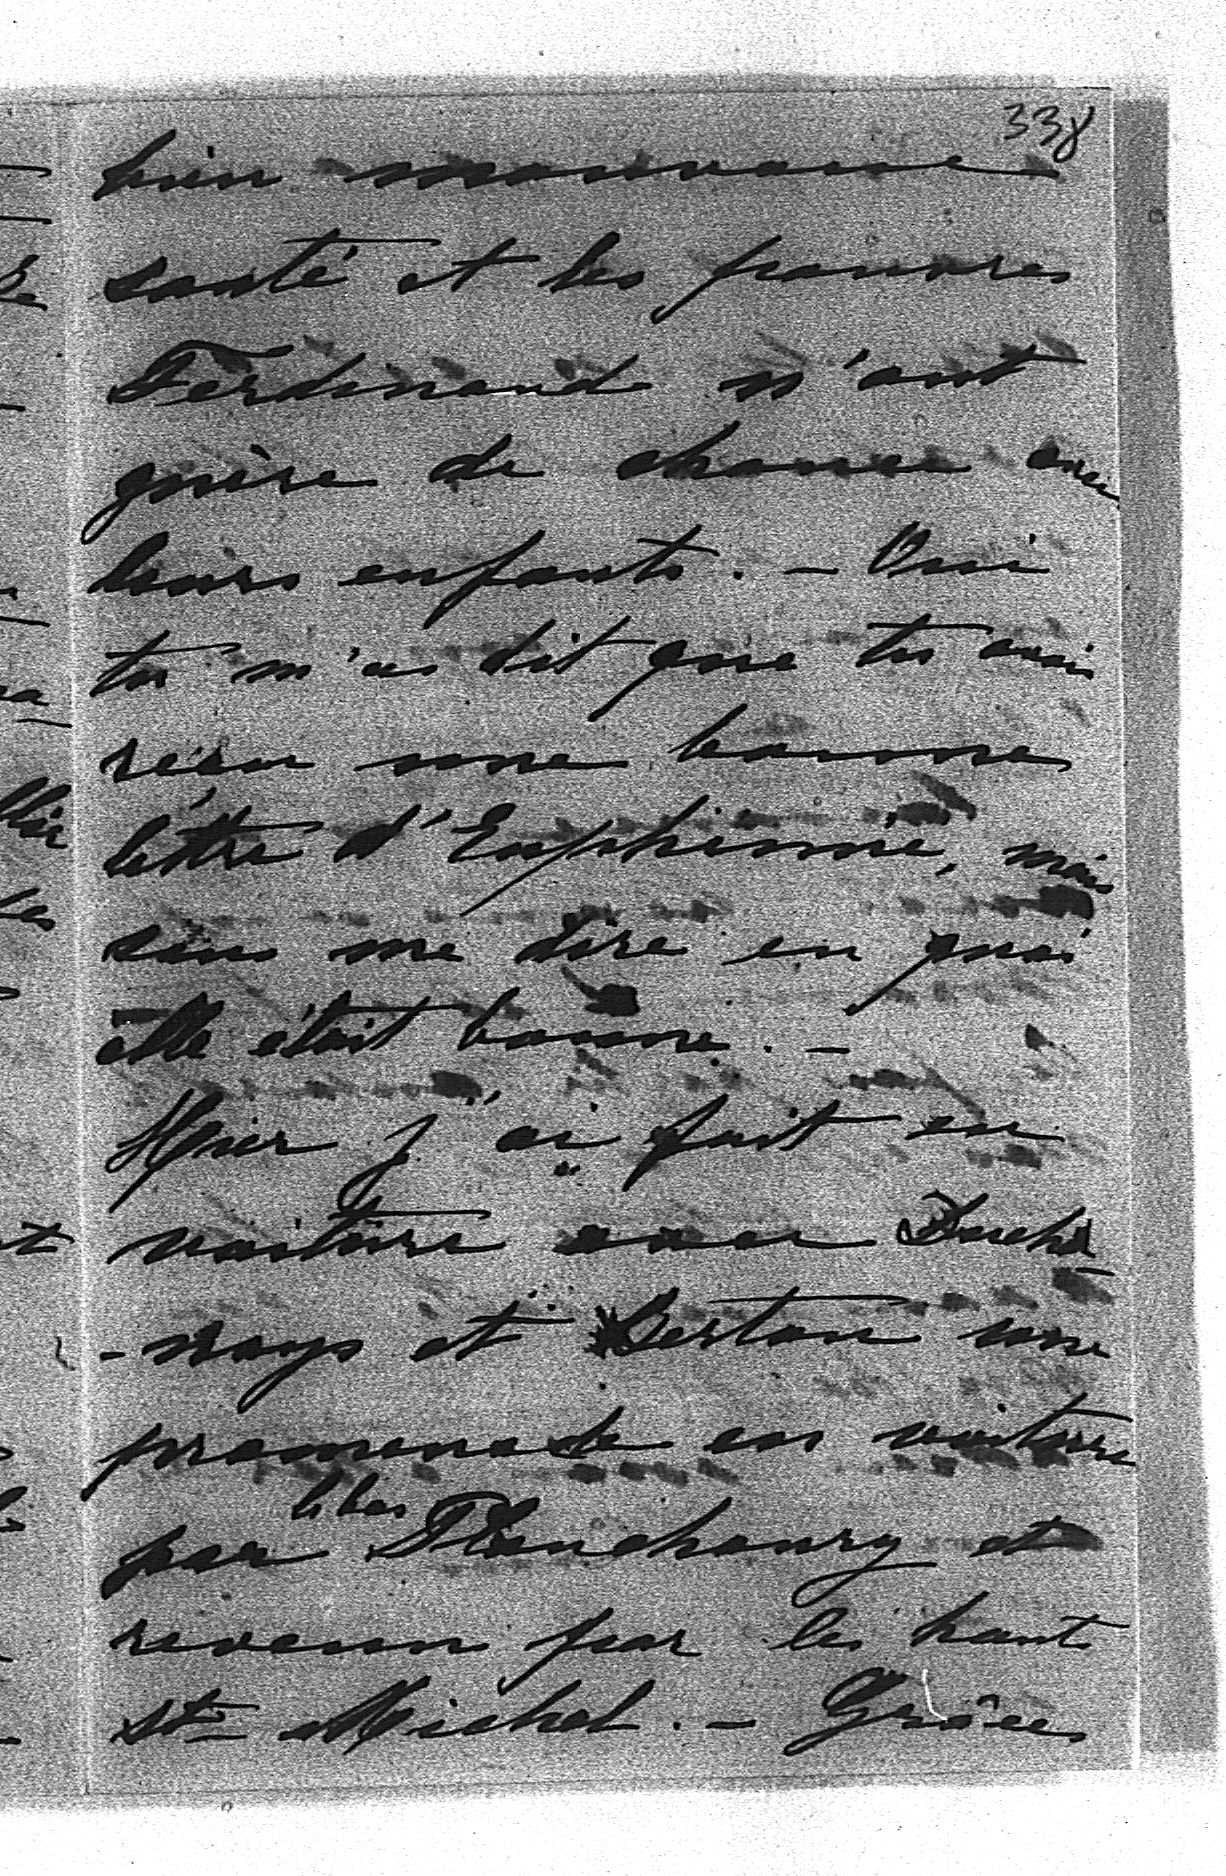 338
bien mauvaise
santé et les pauvres
Ferdinand n'ont
guère de chance avec
leurs enfants. - Oui
tu m'as dit que tu avais
reçu une bonne
lettre d'Euphémie, mais
sans me dire en quoi
elle était bonne. -
Hier j'ai fait en
voiture avec Duché
-nays et Bertau une
promenade en voiture
par
et
revenu par les hauts
St Michel. - Grâces